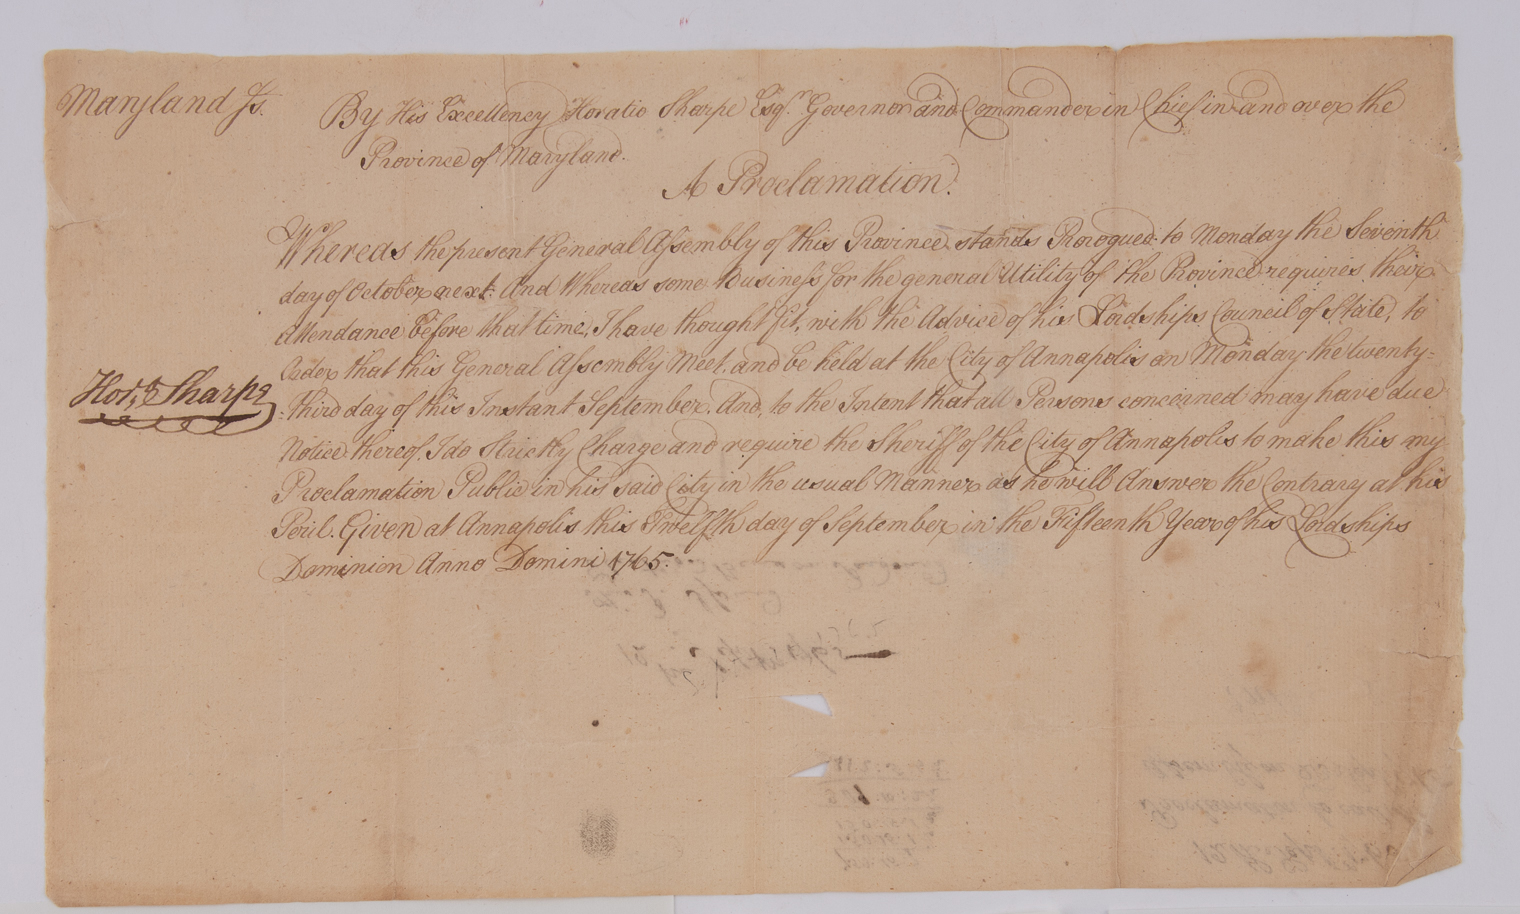 Maryland Ss.
By His Excellency Horatio Sharpe Esqr. Governor and Commander in Chief in and over the
Province of Maryland.
A Proclamation.
Whereas the present General Assembly of this Province stands Prorogued to Monday the Seventh
day of October next. And Whereas some Business for the general Utility of the Province requires their
Attendance before that time, I have thought fit, with the Advice of his Lordships Council of State, to
Order that this General Assembly Meet and be held at the City of Annapolis on Monday the twenty=
third day of this Instant September. And, to the Intent that all Persons concerned may have due
Notice thereof. I do Strictly Charge and require the Sheriff of the City of Annapolis to make this my
Proclamation Public in his said City in the usual Manner as he will Answer the Contrary at his
Peril. Given at Annapolis this Twelfth day of September in the Fifteenth Year of his Lordships
Dominion Anno Domini 1765.
Horo. Sharpe